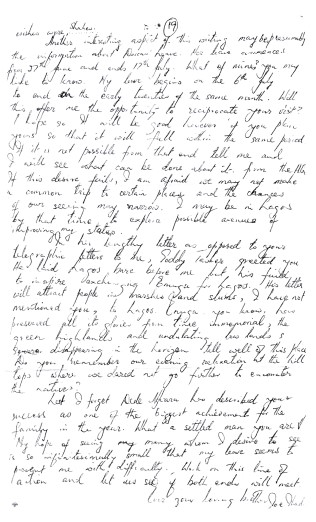 wishes were shaken.
(19)
Another interesting aspect of this writing may be presumably
the information about Duration leave. His leave commences
from 27th June and ends 17th July. What of mine? you may
like to know. My leave begins on the 6th July
to end in the early twenties of the same month. Will
this offer me the opportunity to reciprocate your visit?
I hope so. I will be glad however if you plan
yours so that it will fall within the same period
If it is not possible from that end, tell me and
I will see what can be done about it from the
If this desire fails, I am afraid we may not make
a common trip to certain places and the chances
of our seeing may narrow. I may be in Lagos
by that time, to explore possible avenues of
improving my status.
In his lengthy letter as opposed to your
telegraphic letters to me, Teddy greeted you
He had Lagos before me but his
to inspire exchanging Enugu for Lagos. His letter
will attract people in marshes and slums, I have not
mentioned you, to Lagos. Enugu you know, have
preserved all its from time immemorial, the
green highlands and undulating lowlands
disappearing in the horizon tell well of this place
Do you remember our evening at the hill
tops where we dared not go further to encounter
the natives?
Lest I forget described your
success as one of the biggest achievement for the
family in the year. What a settled man you are!
My hope of seeing many whom I desire to see
is so infinitesimally small that my leave seems to
present me with difficulty. Work on this line of
action and let us see if both ends will meet
your loving brother,